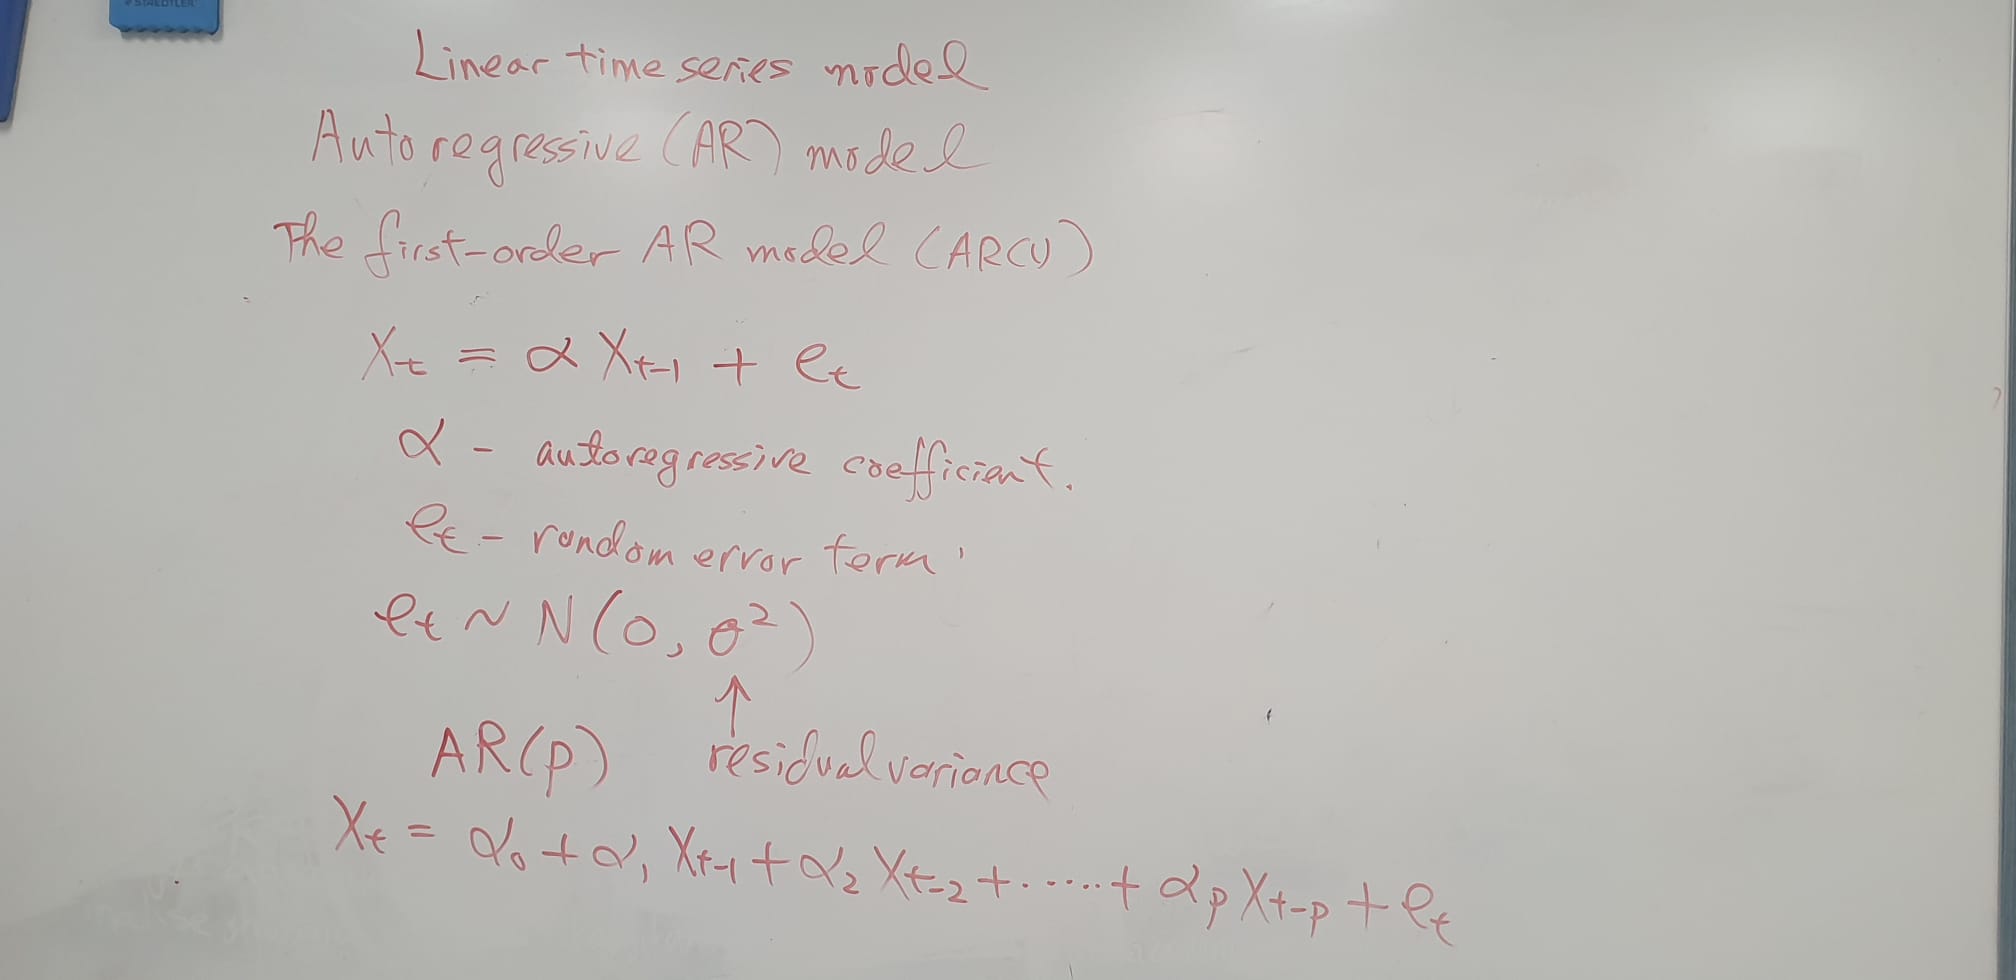 STAEDTLER
Linear time series model
Autoregressive (AR) model
The first-order AR model (AR(1))
Xt = α Xt-1 + et
α - autoregressive coefficient.
et - random error term.
et ~ N(0, σ²)
↑
AR(p) residual variance
Xt = α0 + α1 Xt-1 + α2 Xt-2 + ...... + αp Xt-p + et